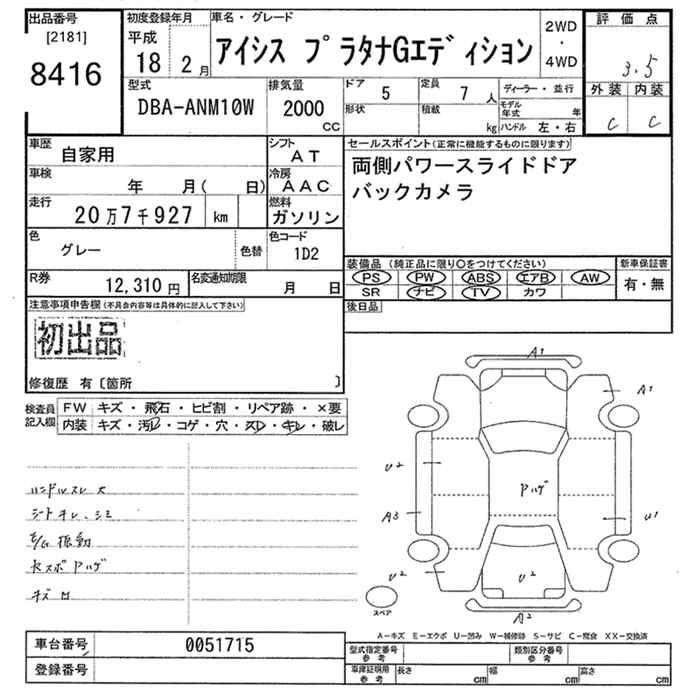 出品番号
[2181]
8416
初度登録年月
平成
18 2月
車名・グレード
アイシス プラタナGエディション
2WD
・
4WD
評価点
3.5
外装 内装
C C
型式
DBA-ANM10W
排気量
2000
CC
ドア 5
定員 7人
形状
積載 kg
ディーラー・並行
モデル年式 年
ハンドル 左・右
車歴
自家用
シフト
AT
車検
年 月( 日)
冷房
AAC
走行
20万7千927 km
燃料
ガソリン
色
グレー
色替
色コード
1D2
R券
12,310円
名変通知期限
月 日
セールスポイント(正常に機能するものに限ります)
両側パワースライドドア
バックカメラ
装備品(純正品に限り○をつけてください)
PS PW ABS エアB AW
SR ナビ TV カワ
新車保証書
有・無
後日品
注意事項申告欄(不具合内容等は具体的に記入して下さい)
初出品
修復歴 有〔箇所 〕
検査員記入欄
FW キズ・飛石・ヒビ割・リペア跡・×要
内装 キズ・汚レ・コゲ・穴・スレ・キレ・破レ
ハンドルスレ大
シートキレ、シミ
E/G振動
セスポPハゲ
キズ
A1
A1
U2
Pハゲ
A3
U1
U2
U2
U2
A2
スペア
A-キズ E-エクボ U-凹み W-補修跡 S-サビ C-腐食 XX-交換済
車台番号 0051715
登録番号
型式指定番号 参考
類別区分番号 参考
車庫証明用 参考
長さ cm 幅 cm 高さ cm